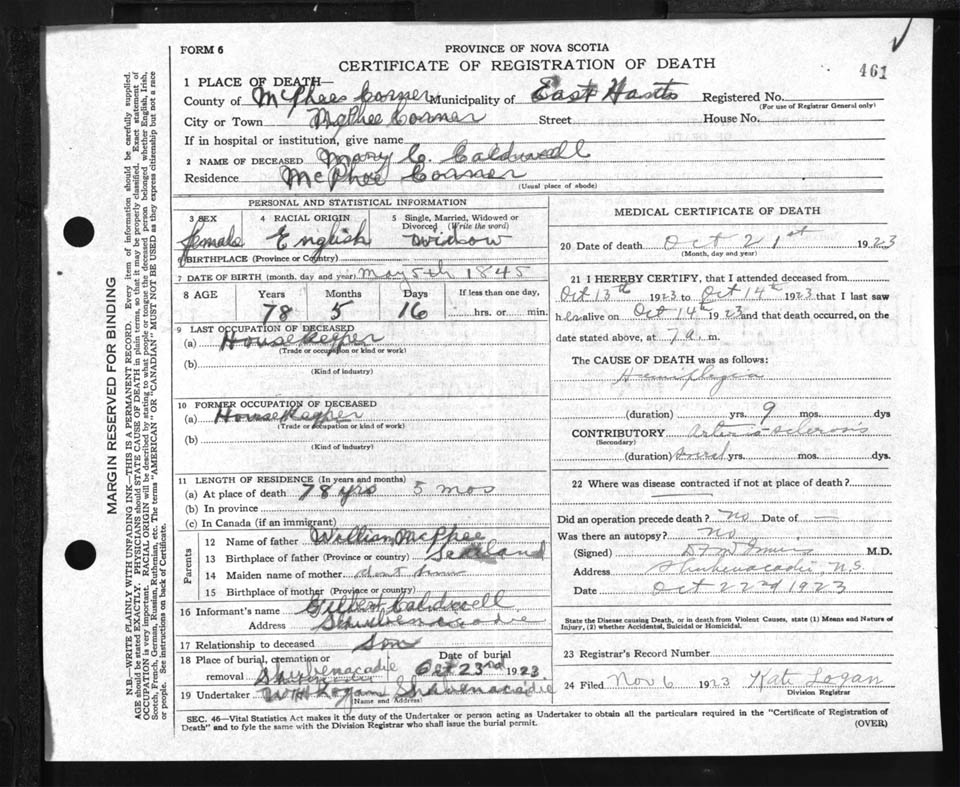 FORM 6
PROVINCE OF NOVA SCOTIA
CERTIFICATE OF REGISTRATION OF DEATH
461
1 PLACE OF DEATH—
County of McPhees Corner Municipality of East Hants Registered No.
(For use of Registrar General only)
City or Town McPhee Corner Street House No.
If in hospital or institution, give name
2 NAME OF DECEASED Mary C. Caldwell
Residence McPhee Corner
(Usual place of abode)
PERSONAL AND STATISTICAL INFORMATION
3 SEX 4 RACIAL ORIGIN 5 Single, Married, Widowed or Divorced (Write the word)
female English Widow
6 BIRTHPLACE (Province or Country)
7 DATE OF BIRTH (month, day and year) May 5th 1845
8 AGE Years Months Days If less than one day,
78 5 16 hrs. or min.
9 LAST OCCUPATION OF DECEASED
(a) Housekeeper
(Trade or occupation or kind or work)
(b)
(Kind of industry)
10 FORMER OCCUPATION OF DECEASED
(a) Housekeeper
(Trade or occupation or kind or work)
(b)
(Kind of industry)
11 LENGTH OF RESIDENCE (In years and months)
(a) At place of death 78 yrs 5 mos
(b) In province
(c) In Canada (if an immigrant)
Parents
12 Name of father William McPhee
13 Birthplace of father (Province or country) Scotland
14 Maiden name of mother dont know
15 Birthplace of mother (Province or Country)
16 Informant's name Gilbert Caldwell
Address Shubenacadie
17 Relationship to deceased Son
18 Place of burial, cremation or removal Shubenacadie Date of burial Oct 23rd 1923
19 Undertaker Logan Shubenacadie
(Name and Address)
MEDICAL CERTIFICATE OF DEATH
20 Date of death Oct 21st 1923
(Month, day and year)
21 I HEREBY CERTIFY, that I attended deceased from
Oct 13th 1923 to Oct 14th 1923 that I last saw
her alive on Oct 14th 1923 and that death occurred, on
date stated above, at 7 a. m.
The CAUSE OF DEATH was as follows:
Hemiplegia
(duration) yrs. 9 mos. dys
CONTRIBUTORY Arterio-sclerosis
(Secondary)
(duration) several yrs. mos. dys.
22 Where was disease contracted if not at place of death?
Did an operation precede death? No Date of —
Was there an autopsy? No
(Signed) M.D.
Address Shubenacadie, N.S.
Date Oct 22nd 1923
State the Disease causing Death, or in death from Violent Causes, state (1) Means and Nature of
Injury, (2) whether Accidental, Suicidal or Homicidal.
23 Registrar's Record Number
24 Filed Nov 6 1923 Kate Logan
Division Registrar
SEC. 46—Vital Statistics Act makes it the duty of the Undertaker or person acting as Undertaker to obtain all the particulars required in the "Certificate of Registration of
Death" and to fyle the same with the Division Registrar who shall issue the burial permit.
(OVER)
MARGIN RESERVED FOR BINDING
N.B.—WRITE PLAINLY WITH UNFADING INK—THIS IS A PERMANENT RECORD. Every item of information should be carefully supplied.
AGE should be stated EXACTLY. PHYSICIANS should STATE CAUSE OF DEATH in plain terms, so that it may be properly classified. Exact statement of
OCCUPATION is very important. RACIAL ORIGIN will be described by stating to what people or tongue the deceased person belonged whether English, Irish,
Scotch, French, German, Russian, Ruthenian, etc. The terms "AMERICAN" OR "CANADIAN" MUST NOT BE USED as they express citizenship but not a race
or people. See instructions on back of Certificate.